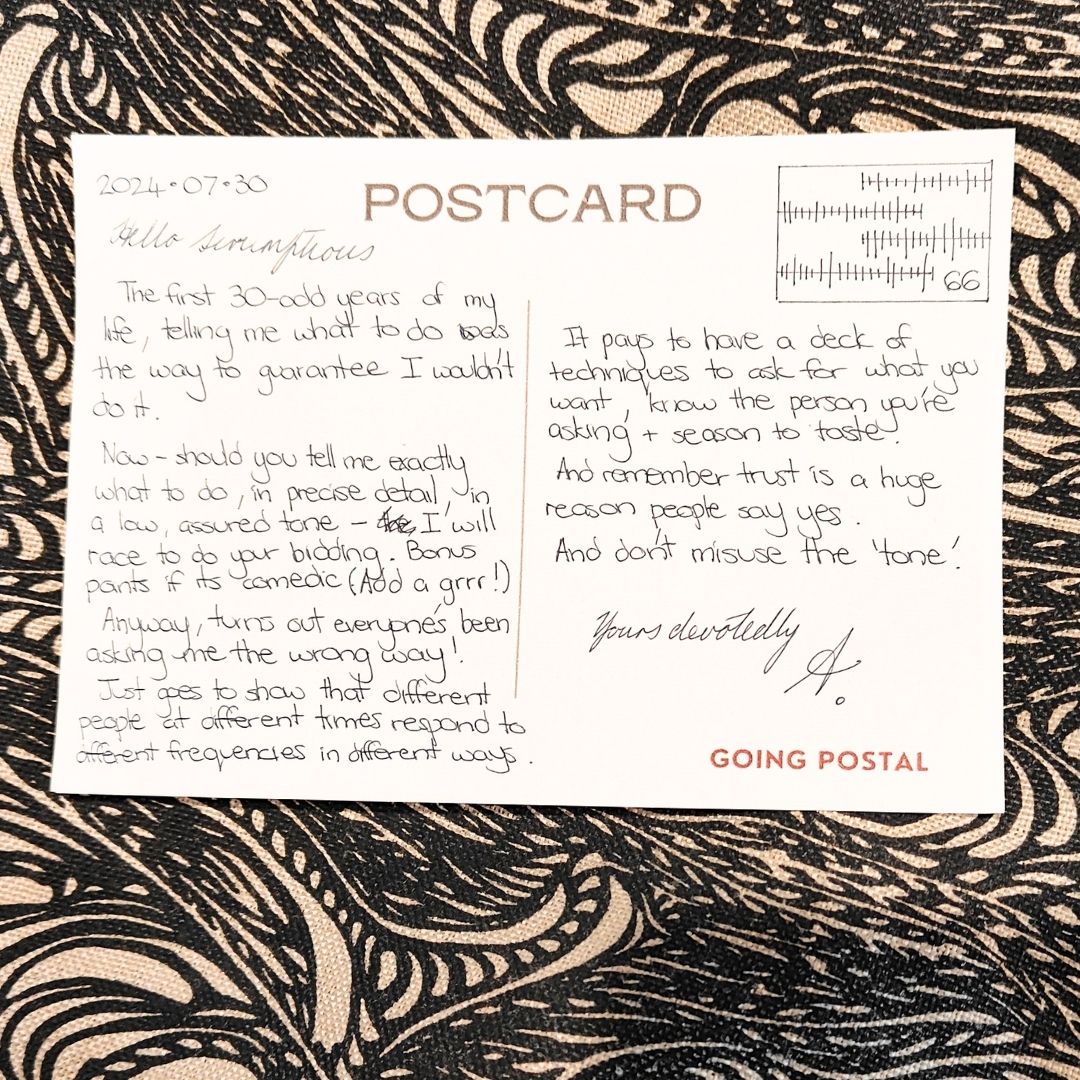 2024·07·30
POSTCARD
66
Hello Scrumptious
The first 30-odd years of my
life, telling me what to do was
the way to guarantee I wouldn't
do it.
Now – should you tell me exactly
what to do, in precise detail, in
a low, assured tone – I will
race to do your bidding. Bonus
pants if its comedic (Add a grrr!)
Anyway, turns out everyone's been
asking me the wrong way!
Just goes to show that different
people at different times respond to
different frequencies in different ways.
It pays to have a deck of
techniques to ask for what you
want, know the person you're
asking + season to taste.
And remember trust is a huge
reason people say yes.
And don't misuse the 'tone'.
Yours devotedly
A.
GOING POSTAL